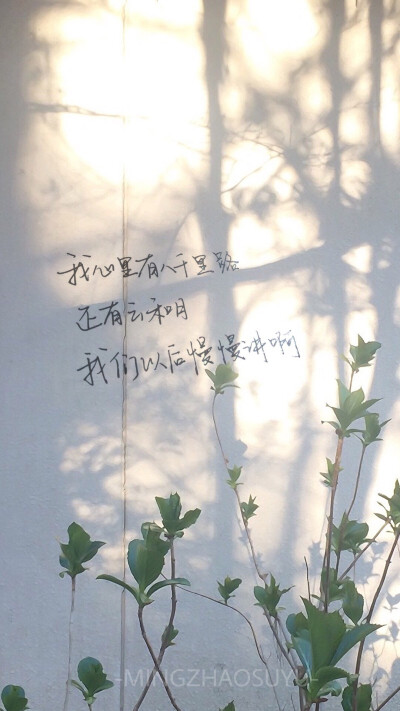 我心里有八千里路
还有云和月
我们以后慢慢讲啊
-MINGZHAOSUYU-